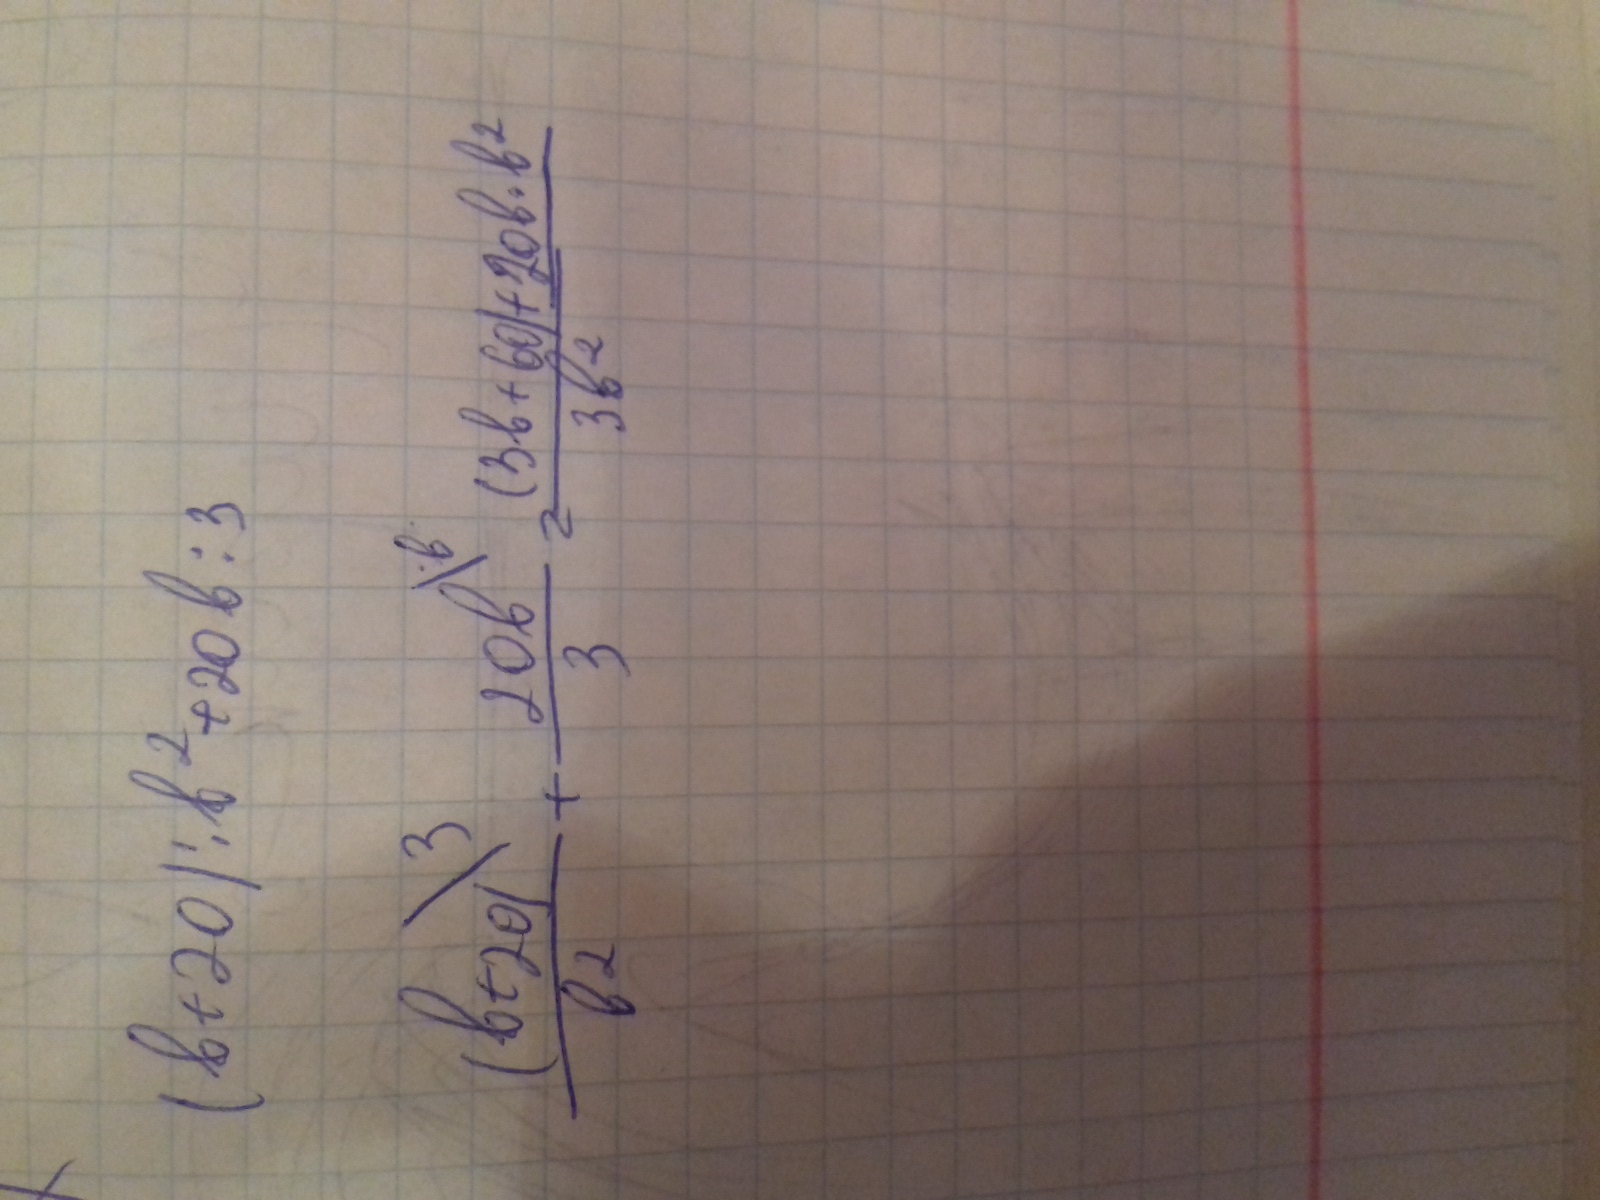 (b+20):b²+20b:3
(b+20)\3 / b² + 20b\b / 3 = (3b+60)+20b·b² / 3b²